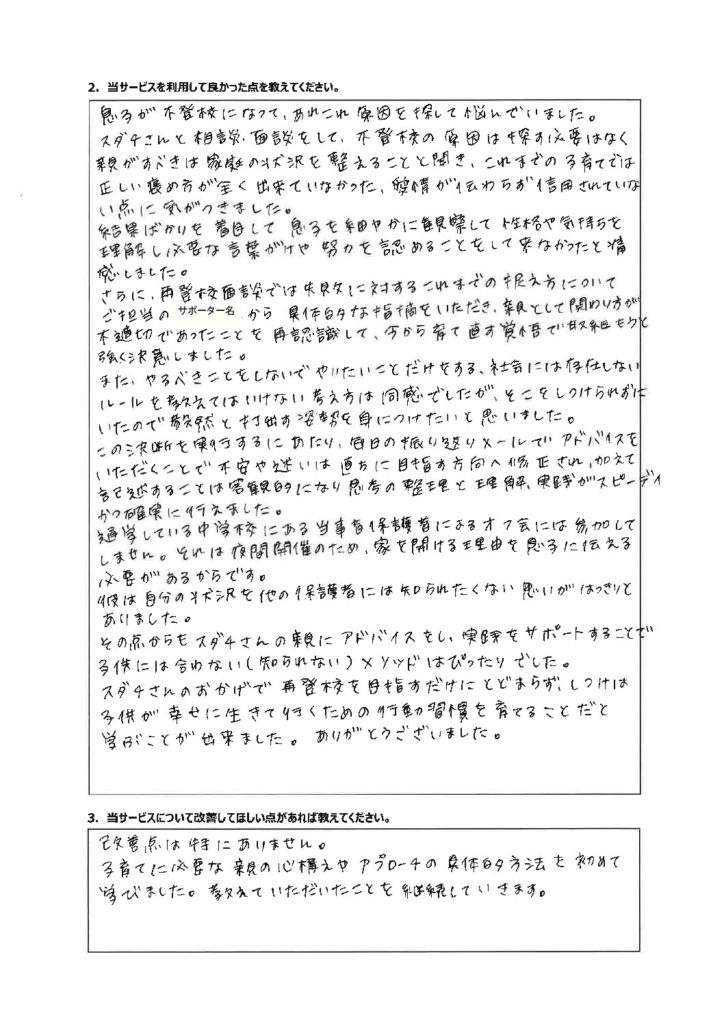 2. 当サービスを利用して良かった点を教えてください。
息子が不登校になって、あれこれ原因を探して悩んでいました。
スダチさんと相談・面談をして、不登校の原因は探す必要はなく
親がすべきは家庭の状況を整えることと聞き、これまでの子育てでは
正しい褒め方が全く出来ていなかった、愛情が伝わらず信用されていな
い点に気がつきました。
結果ばかりを着目して息子を細やかに観察して性格や気持ちを
理解し必要な言葉がけや努力を認めることをして来なかったと痛
感しました。
さらに、再登校面談では失敗に対するこれまでの捉え方について
ご担当の サポーター名 から具体的な指摘をいただき、親として関わり方が
不適切であったことを再認識して、今から育て直す覚悟で取組もうと
強く決意しました。
また、やるべきことをしないでやりたいことだけをする、社会には存在しない
ルールを教えてはいけない考え方は同感でしたが、そこをしつけられずに
いたので毅然と打出す姿勢を身につけたいと思いました。
この決断を実行するにあたり、毎日の振り返りメールでアドバイスを
いただくことで不安や迷いは直ちに目指す方向へ修正され、加えて
記述することは客観的になり思考の整理と理解、実践がスピーディ
かつ確実に行えました。
通学している中学校にある当事者保護者によるオフ会には参加して
しません。それは夜間開催のため、家を開ける理由を息子に伝える
必要があるからです。
彼は自分の状況を他の保護者には知られたくない思いがはっきりと
ありました。
その点からもスダチさんの親にアドバイスをし、実践をサポートすることで
子供には合わない(知られない)メソッドはぴったりでした。
スダチさんのおかげで再登校を目指すだけにとどまらず、しつけは
子供が幸せに生きて行くための行動習慣を育てることだと
学ぶことが出来ました。ありがとうございました。
3. 当サービスについて改善してほしい点があれば教えてください。
改善点は特にありません。
子育てに必要な親の心構えやアプローチの具体的方法を初めて
学びました。教えていただいたことを継続していきます。